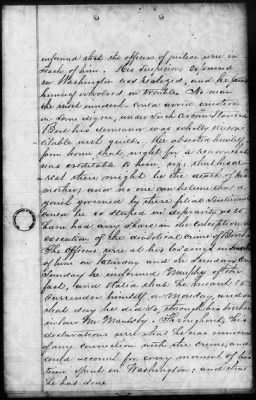 informed that the officers of justice were in
search of him. His suspicion expressed
in Washington was realized, and he found
himself involved in trouble. No man
the most innocent could avoid emotion
in some degree, under such circumstances
But his demeanor was wholly irrecon
cilable with guilt. He absented himself
from home that night for a reason which
was creditable to him, viz; that his ar
rest there might be the death of his
mother; and no one can believe that a
youth governed by there filial sentiments
could be so steeped in depravity as to
have had any share in the conception or
execution of the diabolical crime of Booth.
The officers were in his
of him on Saturday and on Sunday. On
Sunday he informed Murphy of the
fact, and stated that he meant to
surrender himself on Monday, and on
that day he did so through his brother
in law Mr. Maulsby. Throughout, his
declarations were that he was innocent
of any connection with the crime, and
could account for every moment of his
time spent in Washington; and that
he has done